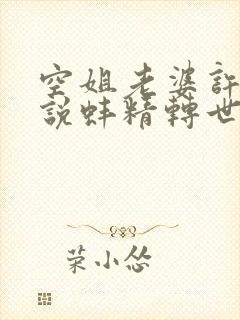 空姐老婆許
說蚌精轉世
菜小怂